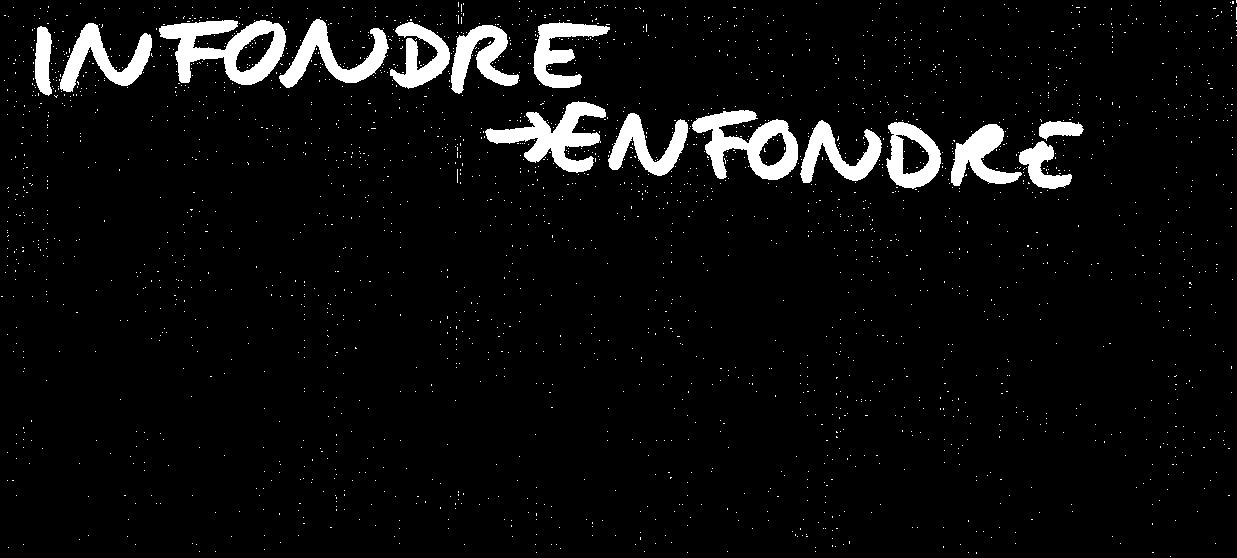 INFONDRE
→ENFONDRE